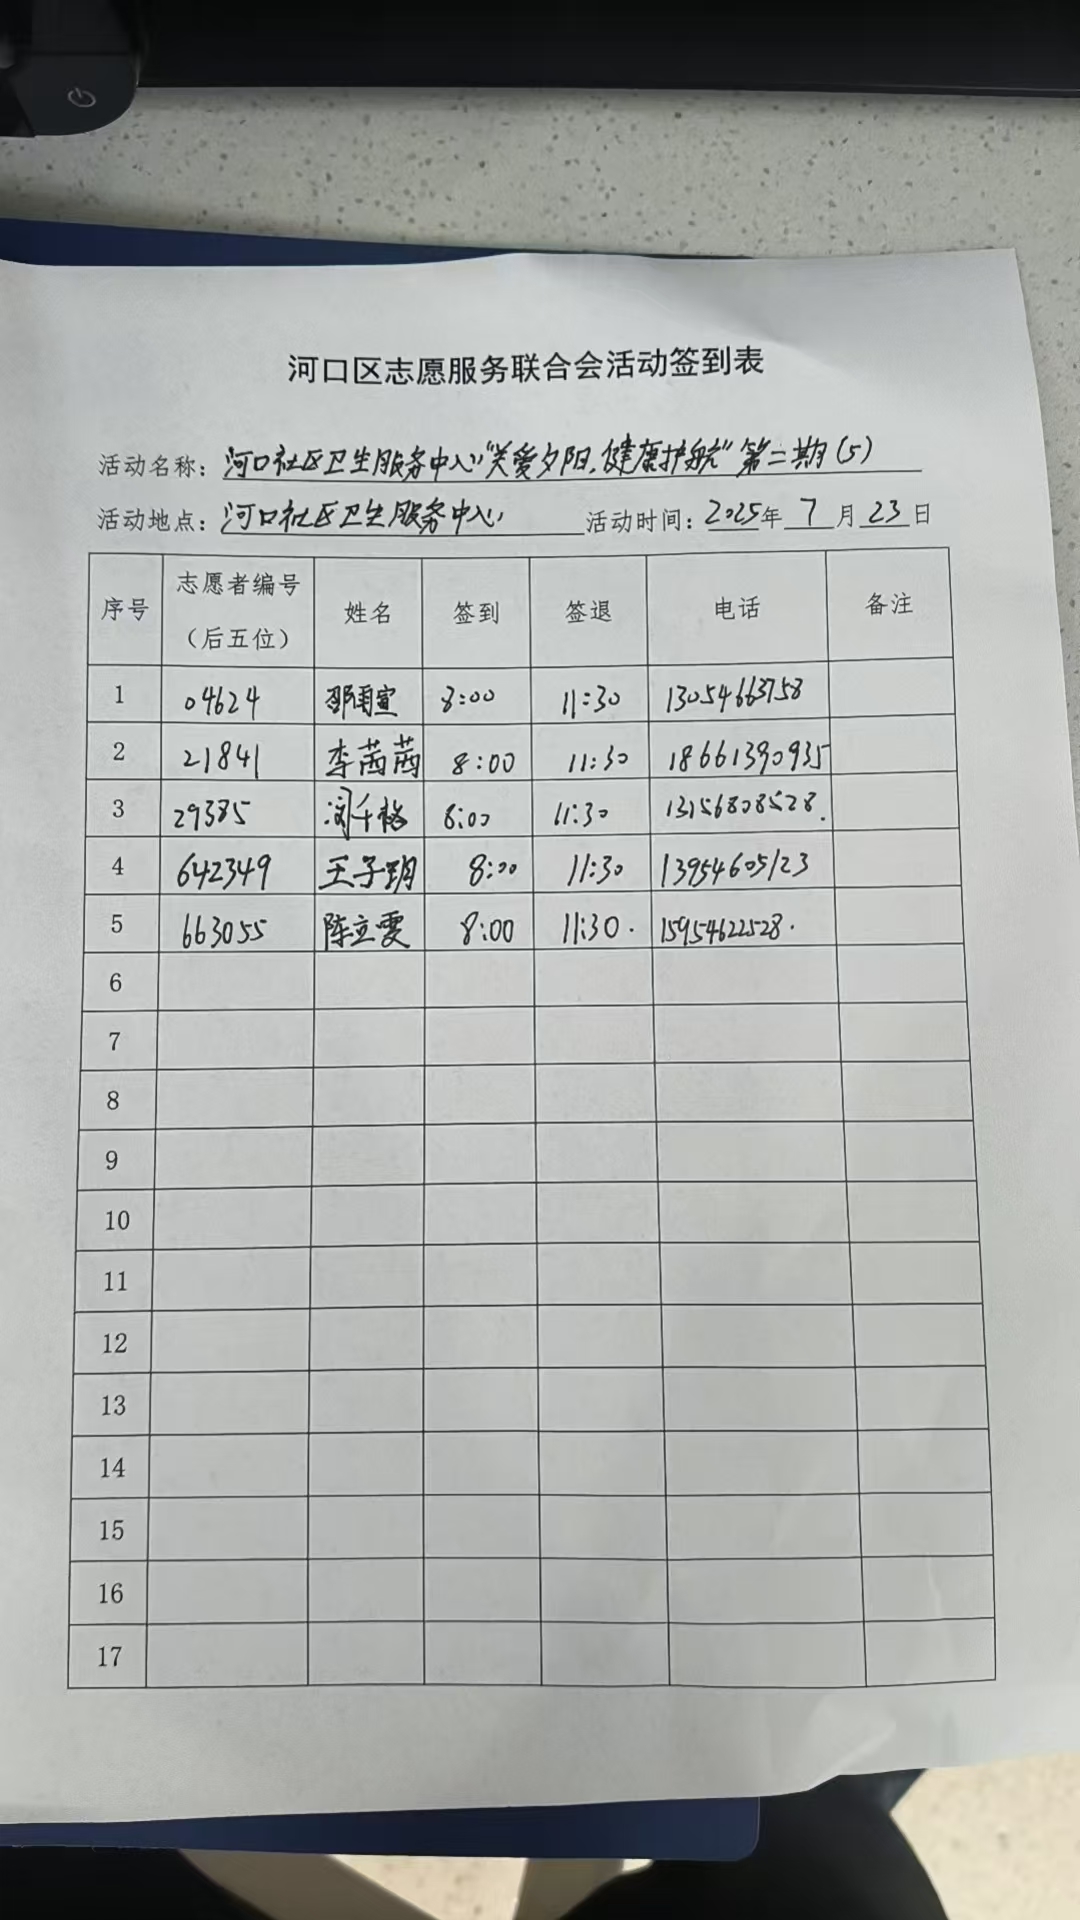 河口区志愿服务联合会活动签到表
活动名称：河口社区卫生服务中心"关爱夕阳，健康护航"第二期(5)
活动地点：河口社区卫生服务中心 活动时间：2025年7月23日
序号 志愿者编号（后五位） 姓名 签到 签退 电话 备注
1 04624 邵雨宣 8:00 11:30 13054663758
2 21841 李茜茜 8:00 11:30 18661390935
3 29385 千格 8:00 11:30 13156808528.
4 642349 王子玥 8:00 11:30 13954605123
5 663055 陈立雯 8:00 11:30. 15954622528.
6
7
8
9
10
11
12
13
14
15
16
17